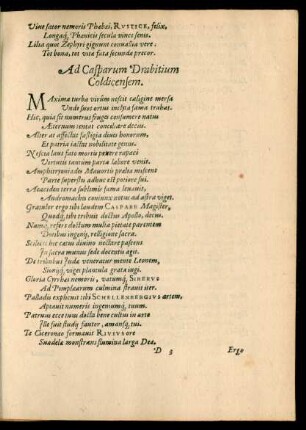 Viue sator nemoris Phœbei, RVSTICE, felix,
Longaq́; Phœnicis secula vince senex.
Lilia quot Zephyri gignunt cœnalia vere:
Tot bona, tot vitæ fata secunda precor.
Ad Casparum Drubitium
Coldicensem.
MAxima turba virûm nescit caligine mersa
Vnde sua ortus inclyta fama trahat.
Hic, quia sit numerus fruges consumere natus
Aeternum renuit conciliare decus.
Alter at affectat fastigia diui honorum,
Et patria iactus nobilitate genus.
Nescia lance fato mortis pauere rapaci
Virtutis tantum parta labore venit.
Amphitryoniaden Mauortis prælia
Parte superstes adhuc est potiore sui.
Aeaciden terra sublimis fama
Andromaches coniunx notus ad astra viget.
Gratuler ergo tibi laudem CASPARE Magister,
Quodq́; tibo tribuit doctus Apollo, decus.
Namq́; refers doctum multa pietate parentem
Dotibus ingenij, religione sacra.
Scilicet hic cœtu diuino nectare pasens
In sacra munus sede docentis agit.
De tribubus Iuda veneratur mente Leonem,
Sionq́; viget plancula grata iugi.
Gloria Cyrrhæi nemoris, vatumq́; SIBERVS
Ad Pimplæarum culmina strauit iter.
Palladis explicuit tibi SCHELLENBERGIVS artem,
Aptauit numeris ingeniumq́; tuum.
Patruus ecce tuus docta bene cultus in arte
Ille fuit studij fautor, amansq́; tui.
Te Cicerone formauit RIVIVS ore
Suadela monstrans flumina larga Dea.
D 5
Ergo